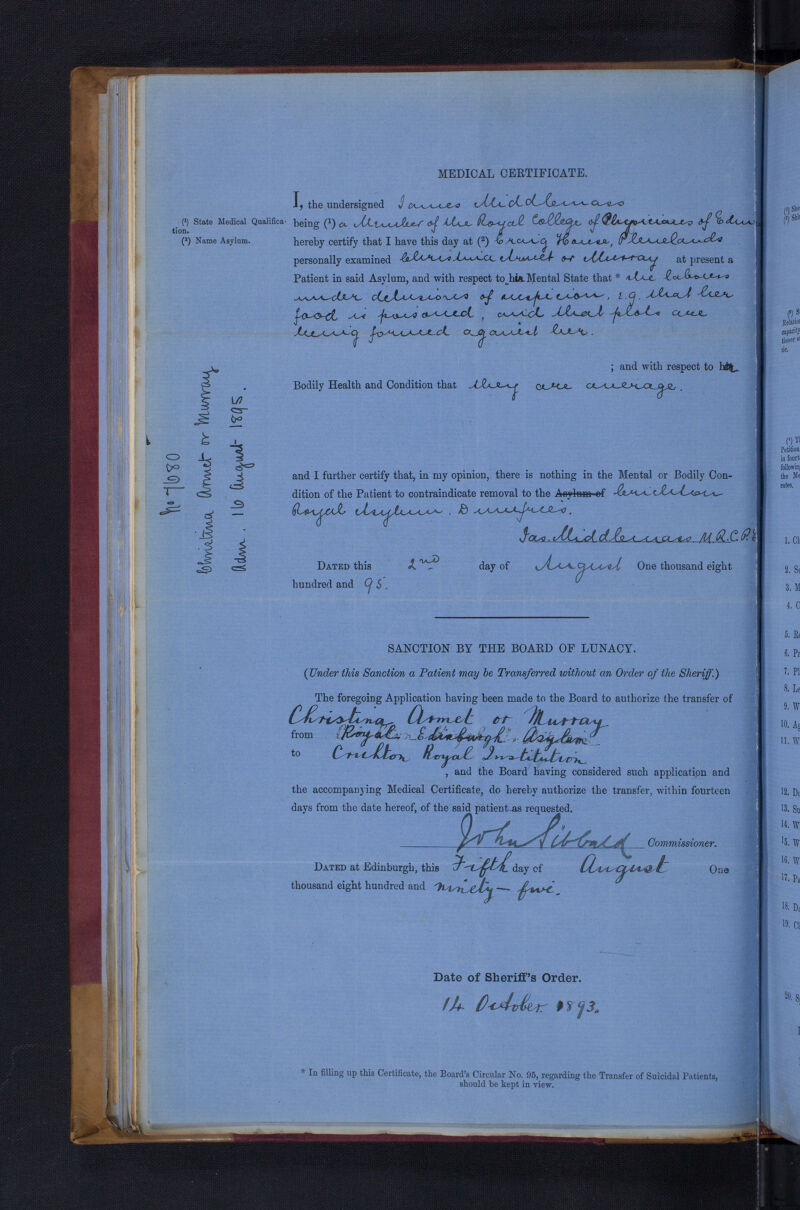 MEDICAL CERTIFICATE.
(¹) State Medical Qualifica-
tion.
(²) Name Asylum.
I, the undersigned James Middlemass
being (¹) a Member of the Royal College of Physicians of Edin
hereby certify that I have this day at (²) Craig House, Plenelands
personally examined Christina Armet or Murray at present a
Patient in said Asylum, and with respect to his Mental State that * she labours
under delusions of suspicion, e.g. that her
food is poisoned, and that plots are
being formed against her.
; and with respect to his
Bodily Health and Condition that they are average.
No 7680
Christina Armet or Murray
Adm. 16 August 1895.
and I further certify that, in my opinion, there is nothing in the Mental or Bodily Con-
dition of the Patient to contraindicate removal to the Asylum of Crichton
Royal Asylum, Dumfries.
Jas. Middlemass M.R.C.P.E
DATED this 2nd day of August One thousand eight
hundred and 95.
SANCTION BY THE BOARD OF LUNACY.
(Under this Sanction a Patient may be Transferred without an Order of the Sheriff.)
The foregoing Application having been made to the Board to authorize the transfer of
Christina Armet or Murray
from Royal Edinburgh Asylum
to Crichton Royal Institution
, and the Board having considered such application and
the accompanying Medical Certificate, do hereby authorize the transfer, within fourteen
days from the date hereof, of the said patient as requested.
John Sibbald Commissioner.
DATED at Edinburgh, this Fifth day of August One
thousand eight hundred and ninety-five.
Date of Sheriff's Order.
14 October 1893.
* In filling up this Certificate, the Board's Circular No. 95, regarding the Transfer of Suicidal Patients,
should be kept in view.